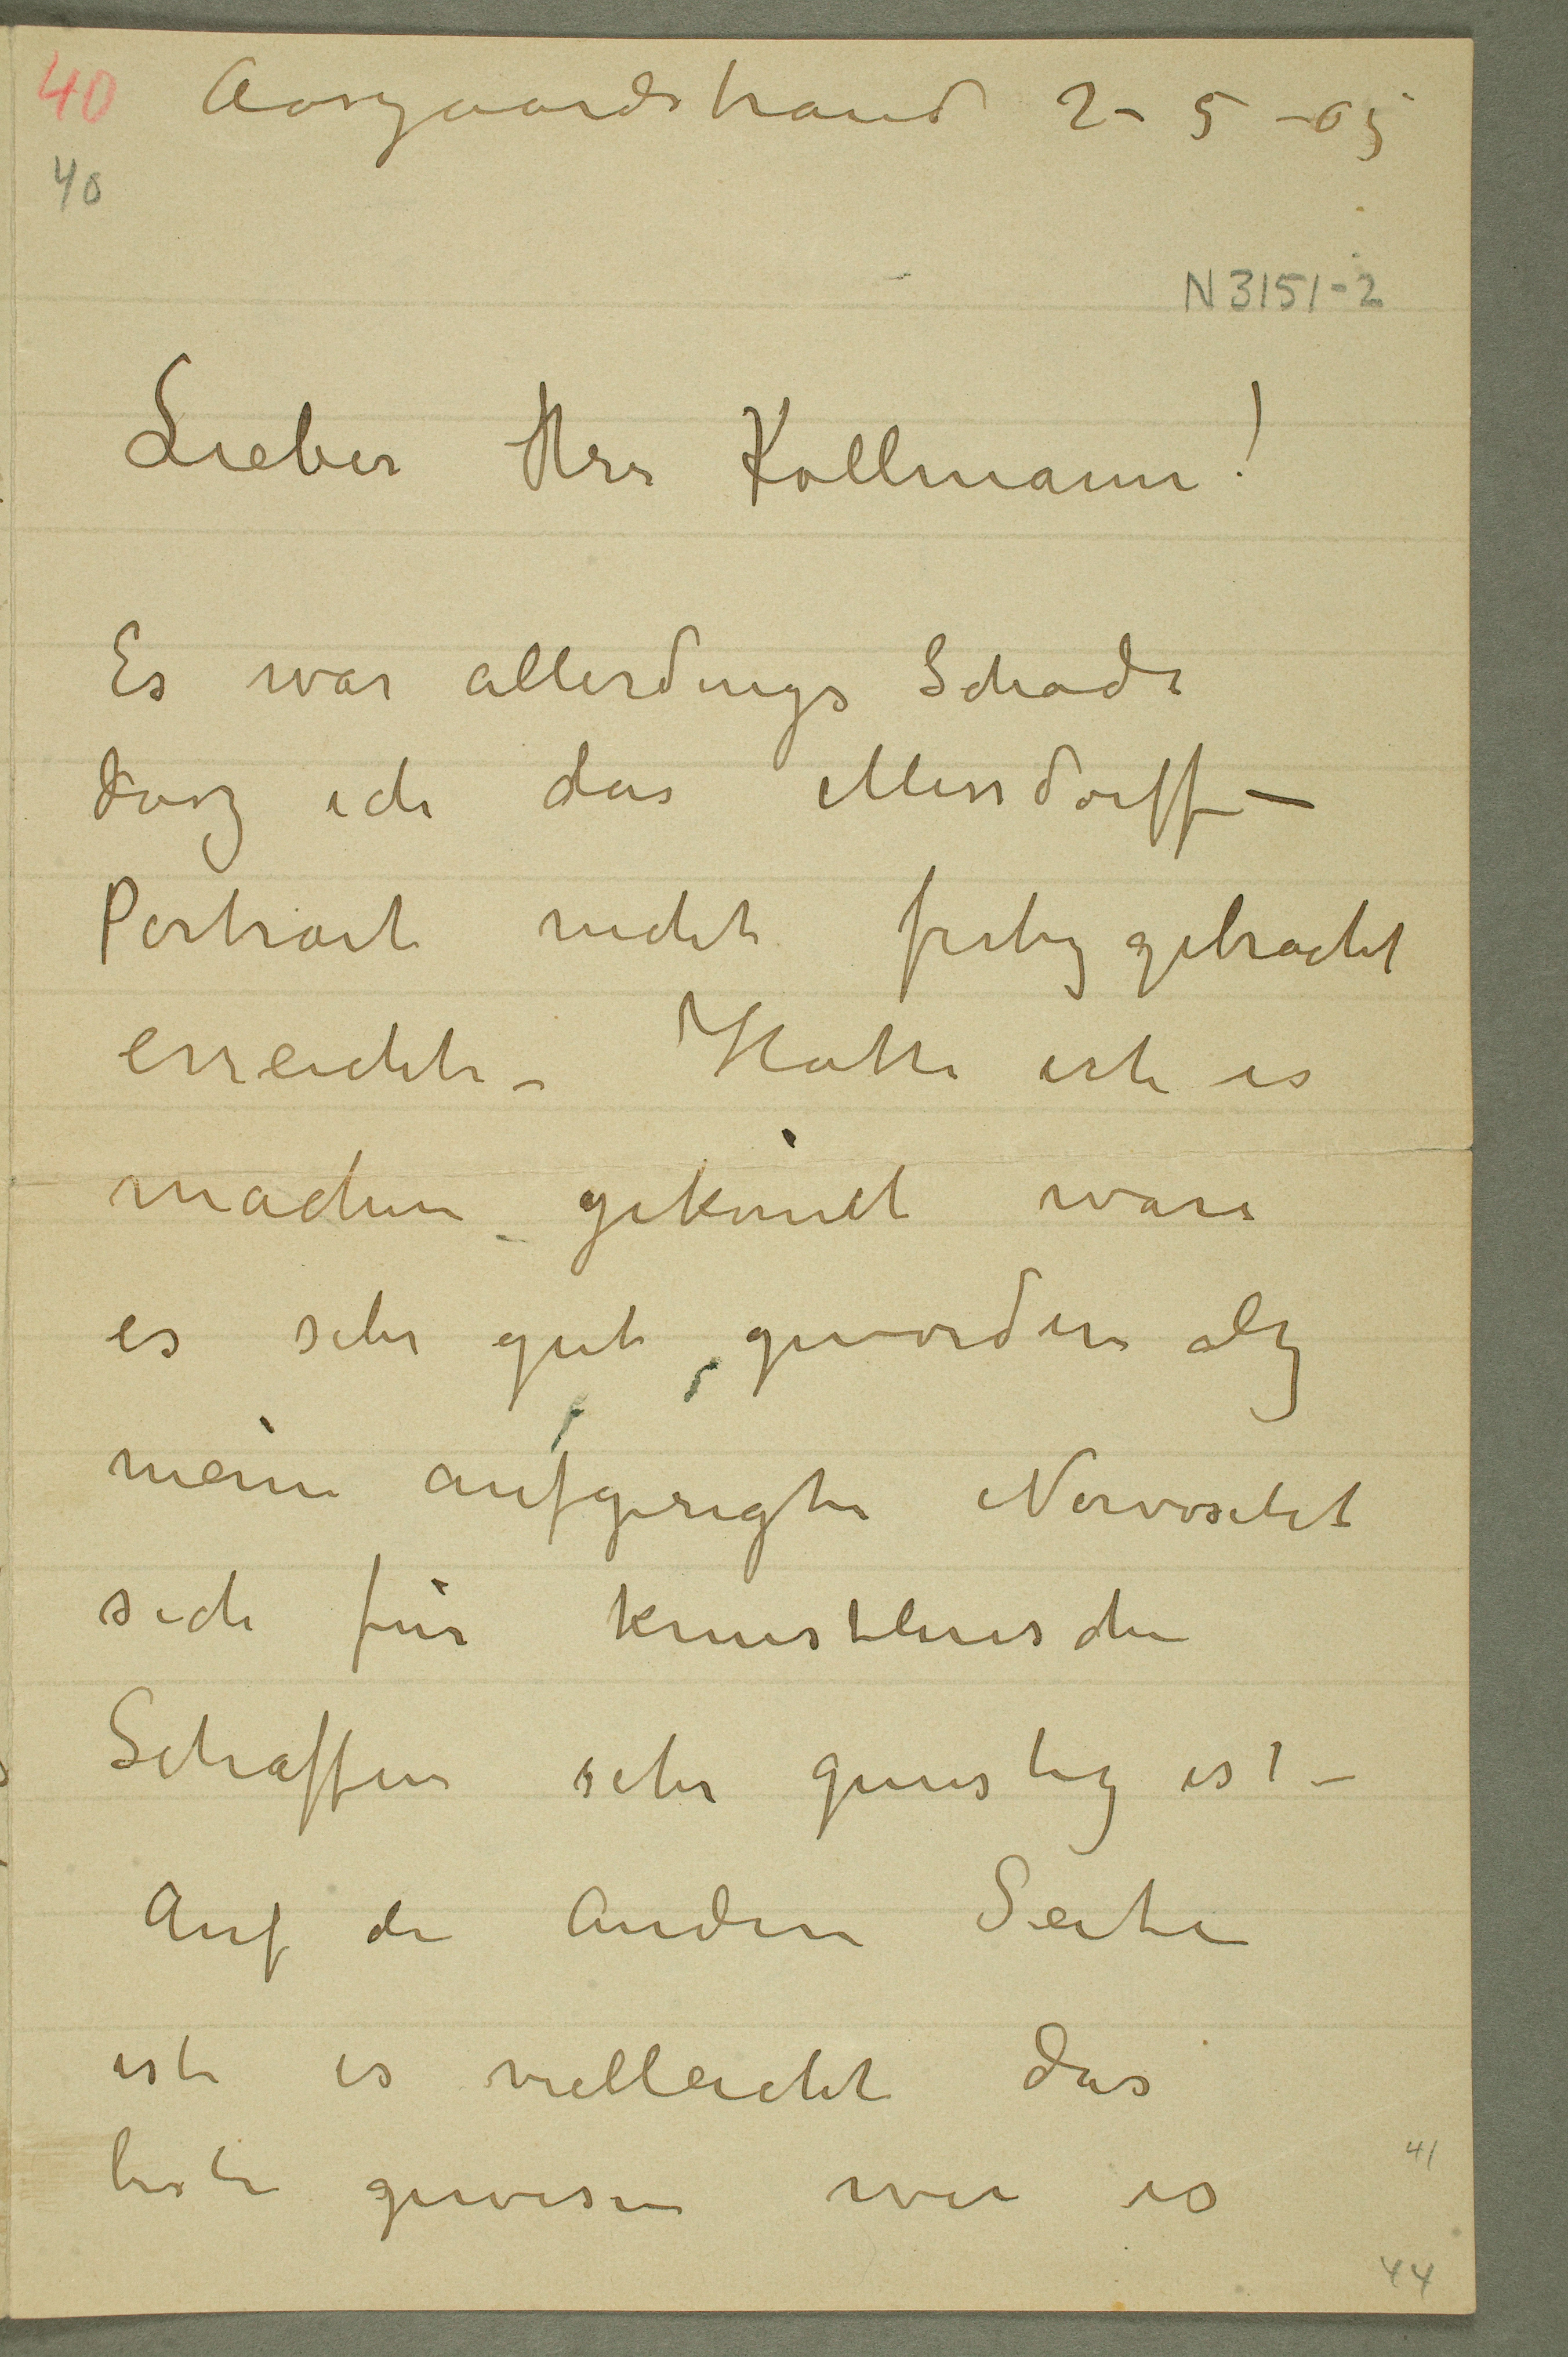 40 Aasgaardstrand 2-5-05
40
N 3151-2
Lieber Herr Kollmann!
Es war allerdings Schade
dasz ich das Mensdorff—
Portrait nicht fertig gebracht
erreichte – Hatte ich es
machen gekönnt ware
es sehr gut geworden als
meine aufgeregte Nervositet
sich für kunstlerische
Schaffen sehr gunstig ist –
Auf de anderen Seite
ist es vielleicht das
beste gewesen wie es
41
44